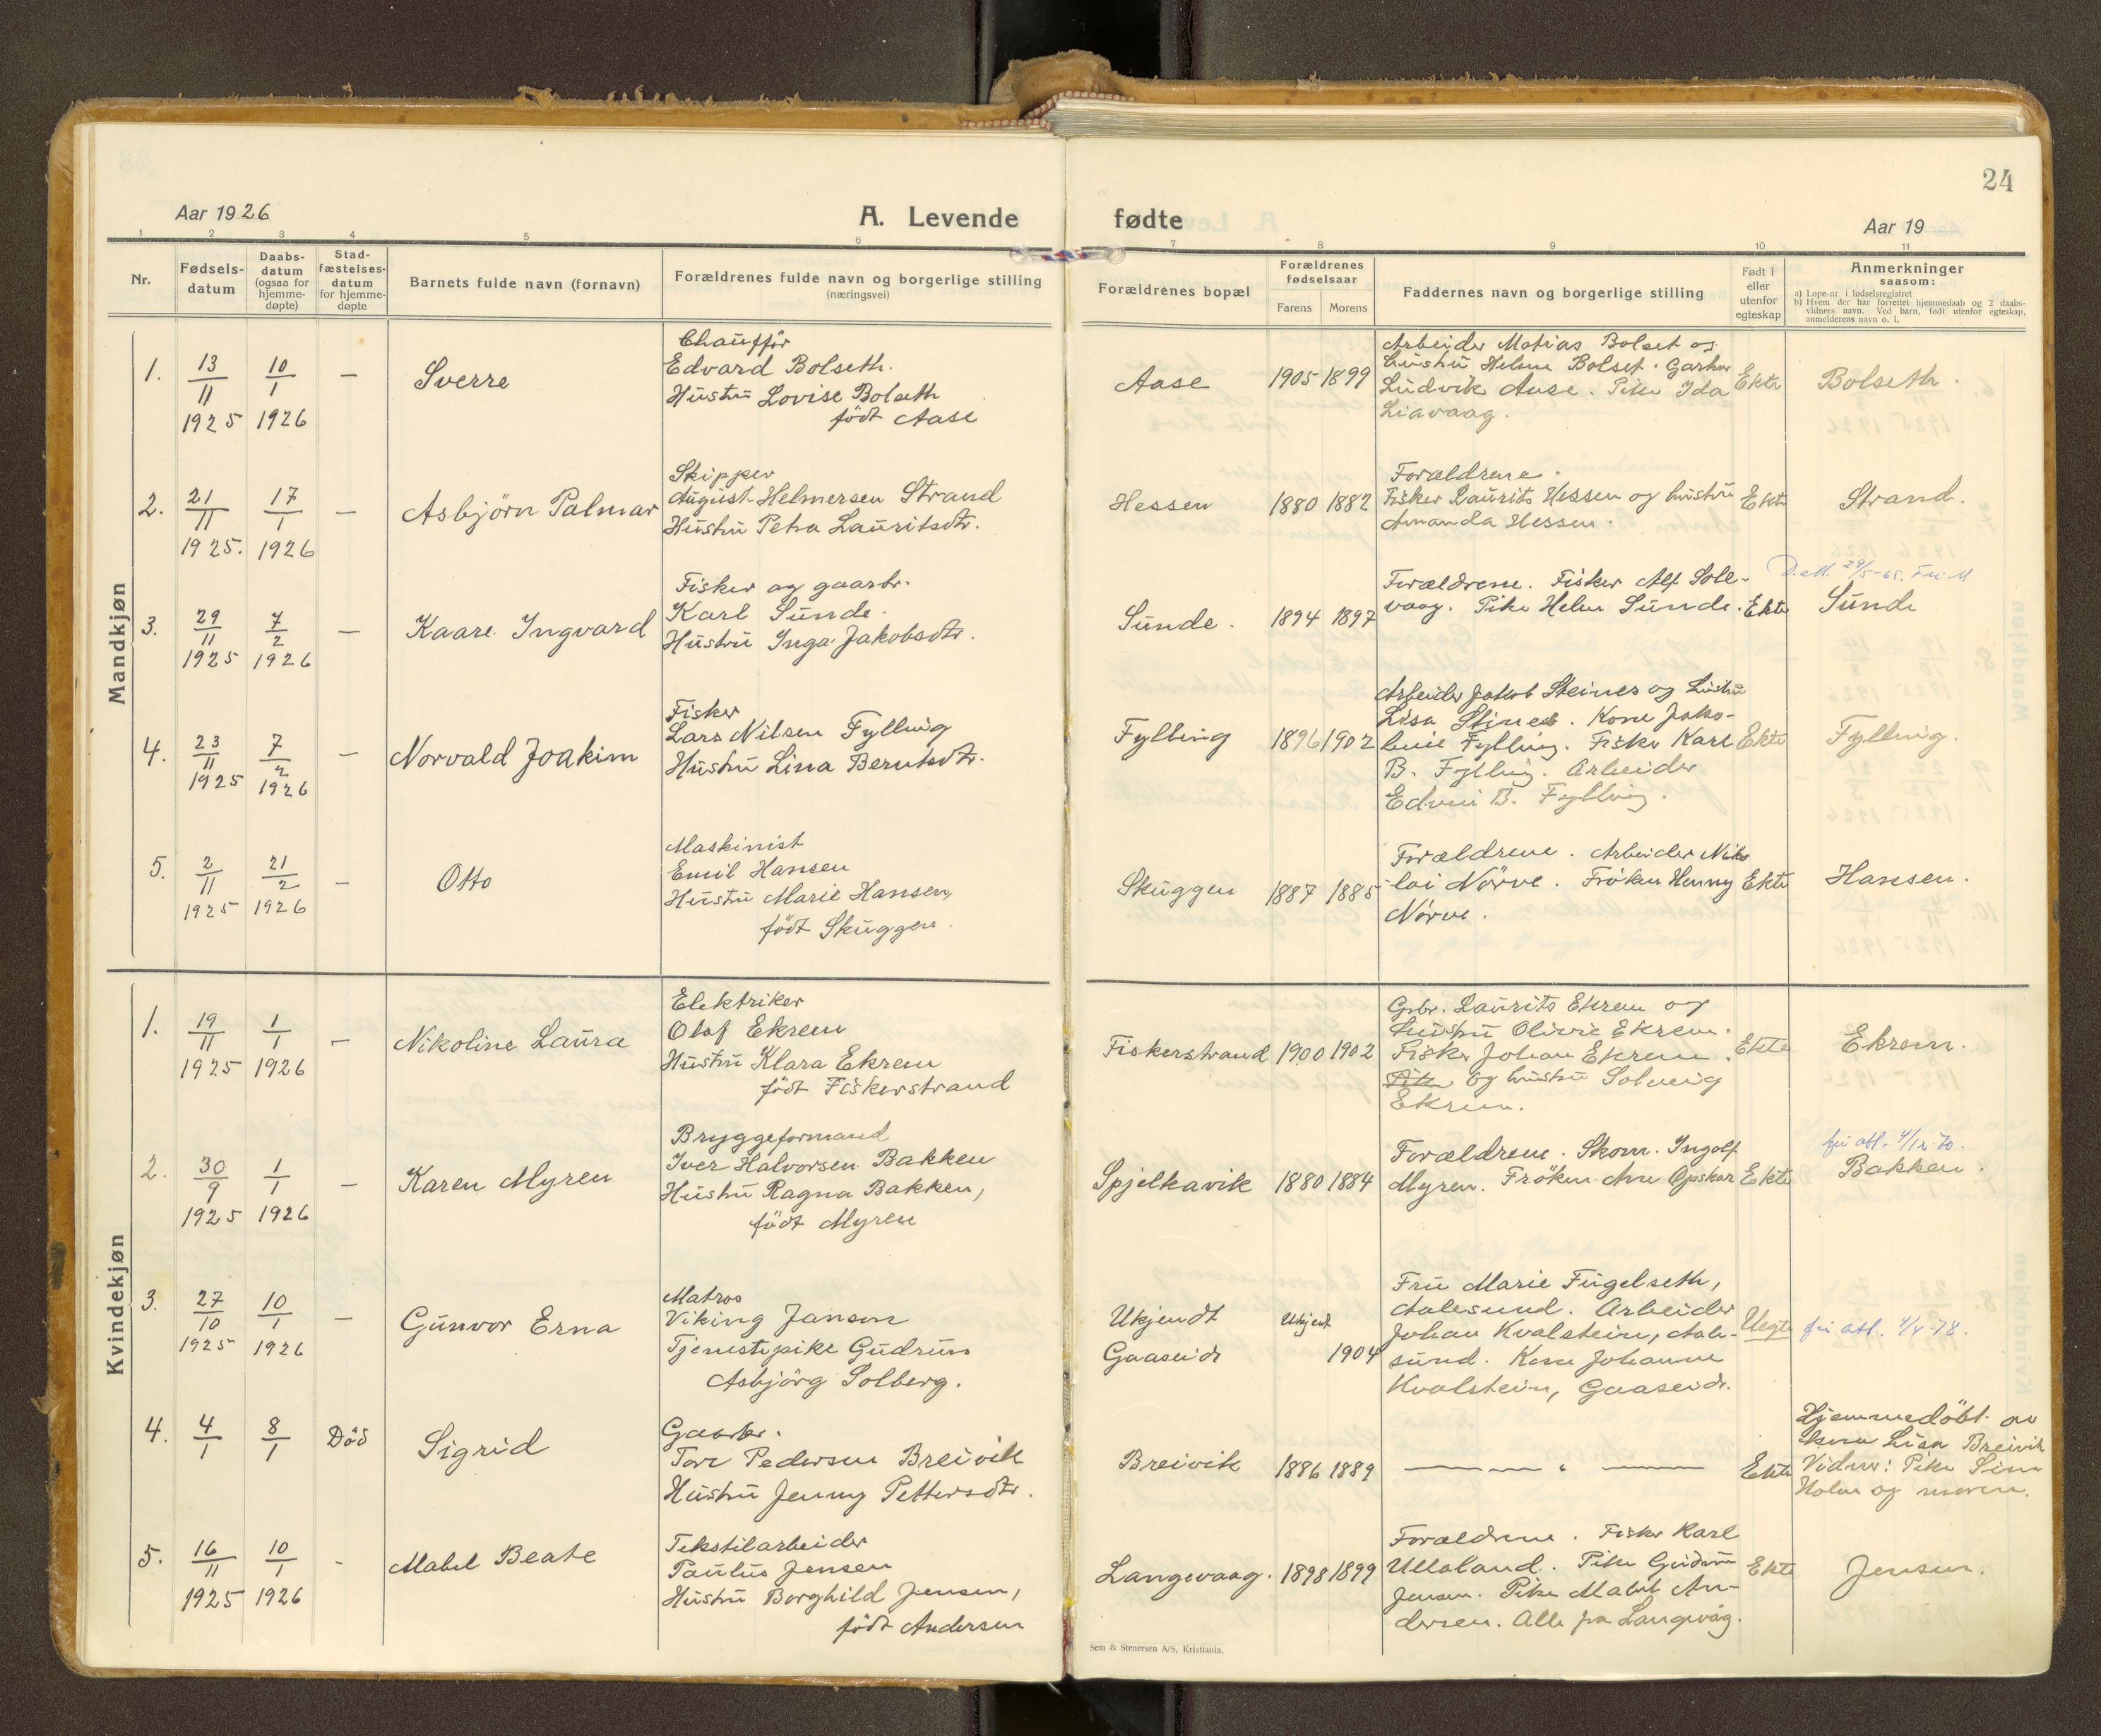 24
Aar 1926
A. Levende
fødte
Aar 19
1 2 3 4 5 6 7 8 9 10 11
Nr.
Fødsels-
datum
Daabs-
datum
(ogsaa for
hjemme-
døpte)
Stad-
fæstelses-
datum
for hjemme-
døpte
Barnets fulde navn (fornavn)
Forældrenes fulde navn og borgerlige stilling
(næringsvei)
Forældrenes bopæl
Forældrenes
fødselsaar
Farens Morens
Faddernes navn og borgerlige stilling
Født i
eller
utenfor
egteskap
Anmerkninger
saasom:
a) Løpe-nr i fødselsregistret
b) Hvem der har forrettet hjemmedaab og 2 daabs-
vidners navn. Ved barn, født utenfor egteskap,
anmelderens navn o. l.
Mandkjøn
1.
13/11
1925
10/1
1926
—
Sverre
Chauffør
Edvard Bolseth.
Hustru Lovise Bolseth
född Aase
Aase
1905 1899
Arbeider Matias Bolset og
hustru Helene Bolset. Garhar
Ludvik Aase. Pike Ida
Liavaag.
Ekte
Bolseth.
2.
21/11
1925.
17/1
1926
—
Asbjörn Palmar
Skipper
August Helmersen Strand
Hustru Petra Lauritsdtr.
Hessen
1880 1882
Forældrene.
Fisker Laurits Hessen og hustru
Amanda Hessen.
Ekte
Strand.
3.
29/11
1925
7/2
1926
—
Kaare Ingvard
Fisker og gaarbr.
Karl Sunde.
Hustru Inga Jakobsdtr.
Sunde.
1894 1897
Forældrene. Fisker Alf Sole-
vaag. Pike Helen Sunde.
Ekte
D.att. 29/5-65. Fri M
Sunde
4.
23/11
1925
7/2
1926
—
Norvald Joakim
Fisker
Lars Nilsen Fylling
Hustru Lina Berntsdtr.
Fylling
1896 1902
Arbeider Jakob Steines og hustru
Lisa Stines. Kone Jako-
bine Fylling. Fisker Karl
B. Fylling. Arbeider
Edvin B. Fylling.
Ekte
Fylling.
5.
2/11
1925
21/2
1926
—
Otto
Maskinist
Emil Hansen
Hustru Marie Hansen,
född Skuggen.
Skuggen
1887 1885
Forældrene. Arbeider Niko
lai Nörve. Frøken Henny
Nørve.
Ekte
Hansen.
Kvindekjøn
1.
19/11
1925
1/1
1926
—
Nikoline Laura
Elektriker
Olaf Ekrem
Hustru Klara Ekrem
född Fiskerstrand
Fiskerstrand
1900 1902
Grbr. Laurits Ekrem og
hustru Olivie Ekrem.
Fisker Johan Ekrem.
Pike og hustru Solveig
Ekrem.
Ekte
Ekrem.
2.
30/9
1925
1/1
1926
—
Karen Myren
Bryggeformand
Iver Halvorsen Bakken
Hustru Ragna Bakken,
född Myren
Spjelkavik
1880 1884
Forældrene. Skom. Ingolf
Myren. Fröken Ane Opskar
Ekte
fri att. 4/12-70.
Bakken.
3.
27/10
1925
10/1
1926
—
Gunvor Erna
Matros
Viking Janson
Tjenestepike Gudrun
Asbjörg Solberg.
Ukjendt
Gaaseidr
Ukjent
1904
Fru Marie Fugelseth,
Aalesund. Arbeider
Johan Kvalstein, Aale-
sund. Kone Johanne
Kvalstein, Gaaseidr.
Uegte
fri att. 4/4-78.
4.
4/1
8/1
Död
Sigrid
Gaarbr.
Tore Pedersen Breivik
Hustru Jenny Pettersdtr.
Breivik
1886 1889
Ekte
Hjemmedöbt av
kona Lisa Breivik
Vidner: Pike Sina
Holm og moren.
5.
16/11
1925
10/1
1926
-
Mabel Beate
Tekstilarbeider
Paulus Jensen
Hustru Borghild Jensen,
född Andersen
Langevaag.
1898 1899
Forældrene. Fisker Karl
Ullaland. Pike Gudrun
Jensen. Pike Mabel An-
dersen. Alle fra Langevåg.
Ekte
Jensen.
Sem & Stenersen A/S, Kristiania.